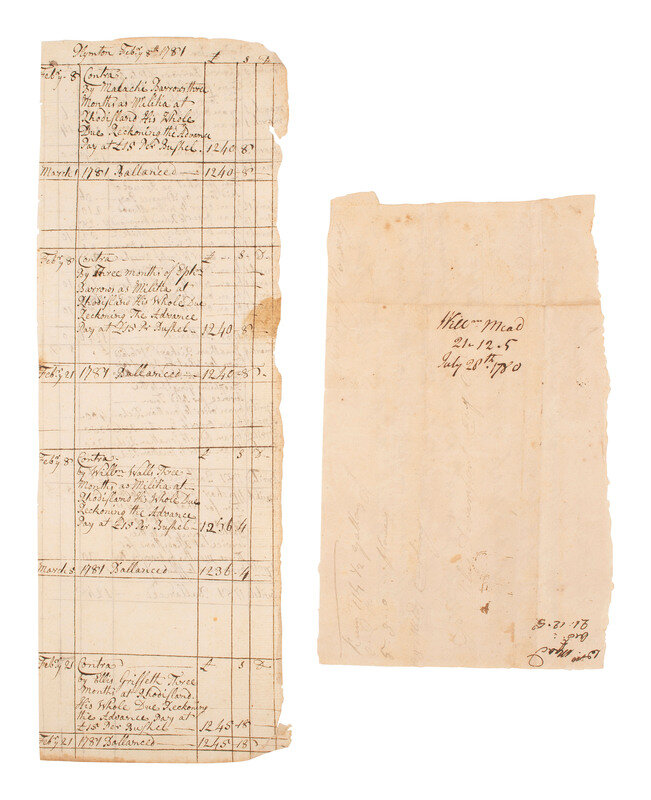 Plymton Feb.y 8th 1781
£ S D
Feb.y 8 Contra
By Malachi Barrows three
Months as Militia at
Rhodisland His Whole
Due Reckoning the Advance
Pay at £15 Per Bushel 1240 8
March 1 1781 Ballanced 1240 8
Feb.y 8 Contra £ S D
By Three months of Eph.m
Barrows as Militia at
Rhodisland His Whole Due
Reckoning The Advance
Pay at £15 Per Bushel 1240 8
Feb.y 21 1781 Ballanced 1240 8
Feb.y 8 Contra £ S D
by Will.m Walls Three
Months as Militia at
Rhodisland His Whole Due
Reckoning the Advance
Pay at £15 Per Bushel 1236 4
March 8 1781 Ballanced 1236 4
Feb.y 21 Contra £ S D
by Ellis Griffeth Three
Months at Rhodisland
His Whole Due Reckoning
the Advance Pay at
£15 Per Bushel 1245 18
Feb.y 21 1781 Ballanced 1245 18
Will.m Mead
21-12-5
July 28th 1780
21-12-5